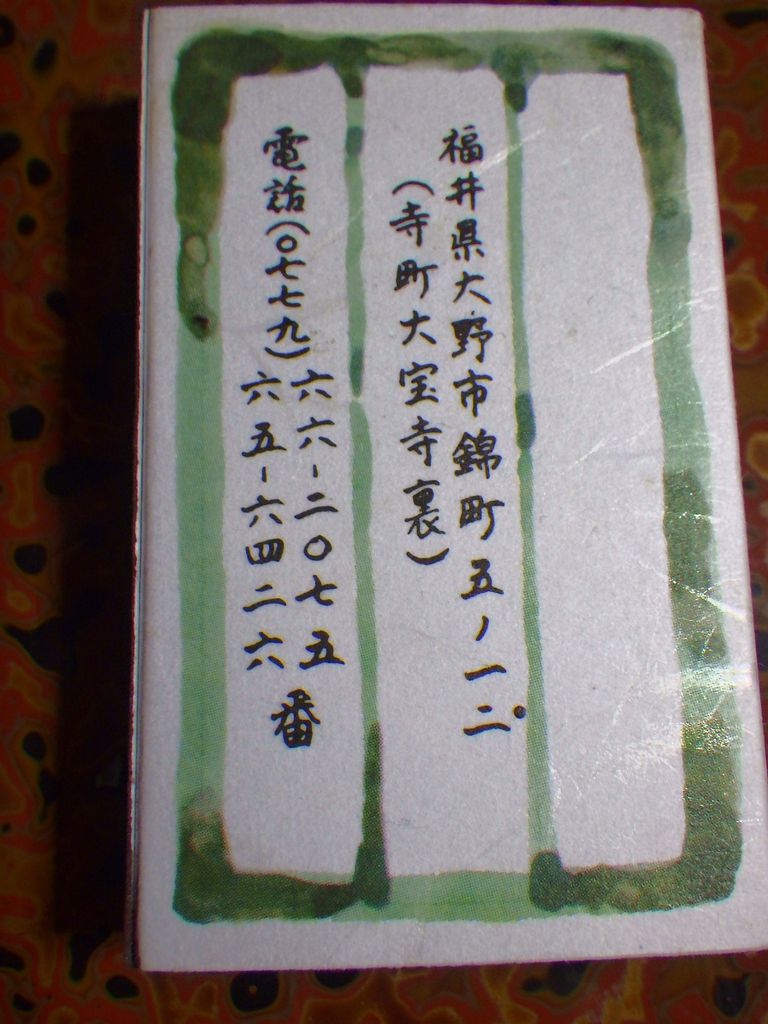 福井県大野市錦町五ノ一二
（寺町大宝寺裏）
電話（〇七七九）六六－二〇七五
六五－六四二六番